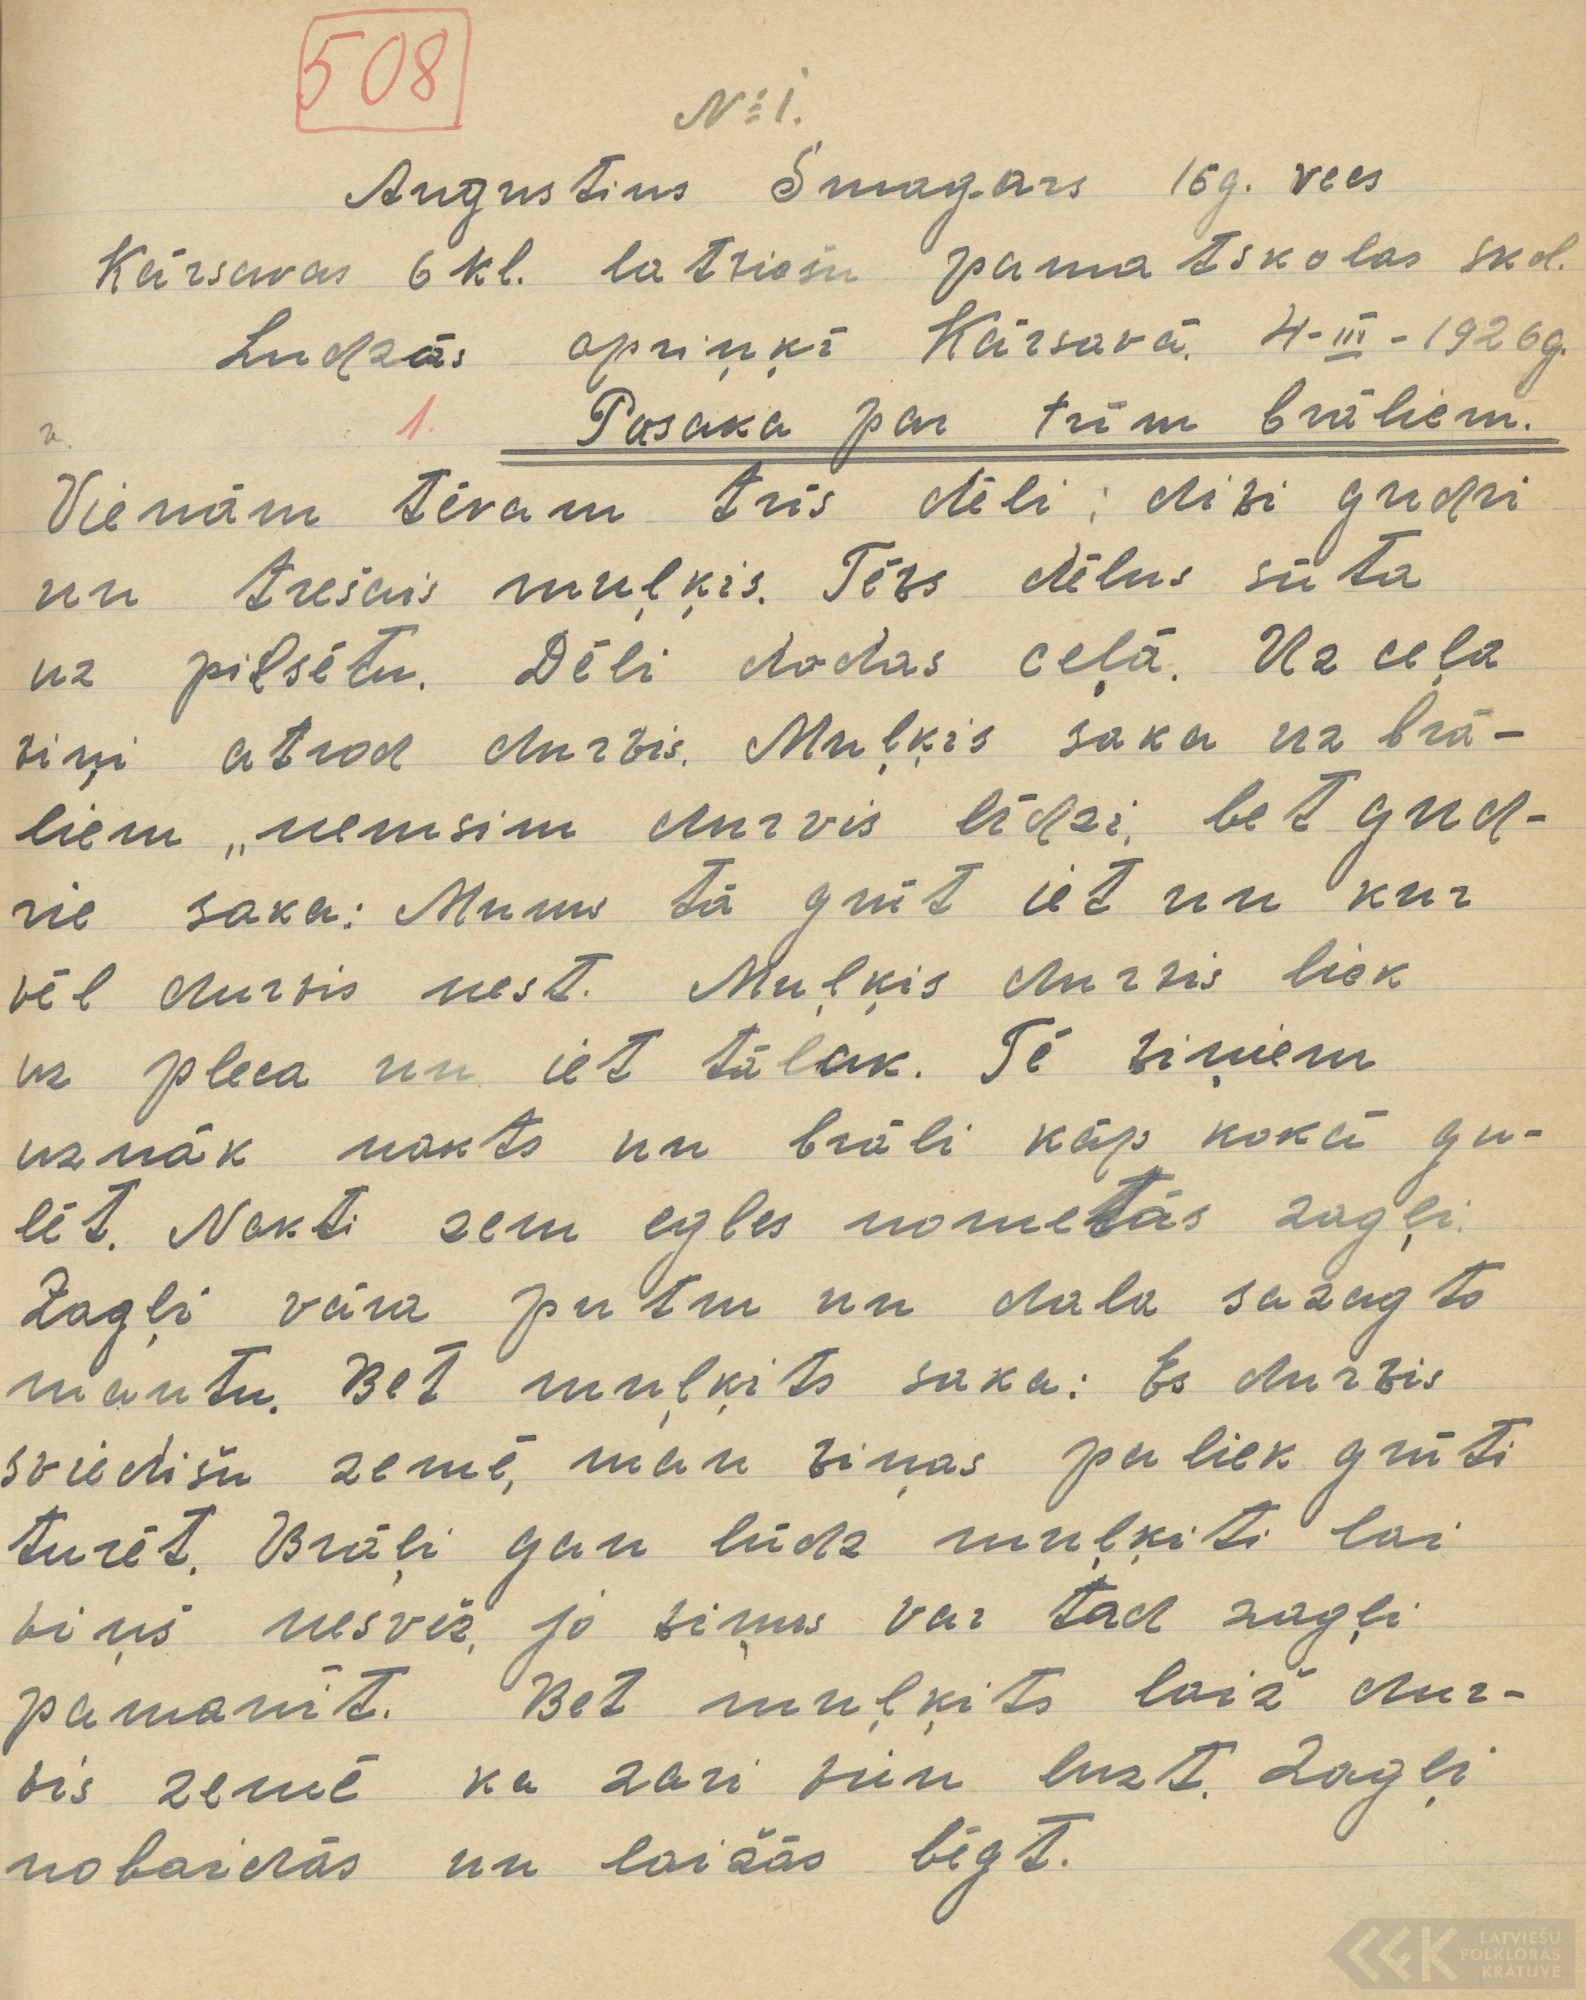 508
№ 1.
Augustins Smagars 16g. vecs
Kārsavas 6 kl. latviešu pamatskolas skol.
Ludzas apriņķī Kārsavā. 4-III-1926g.
1. Pasaka par trīm brāļiem.
Vienām tēvam trīs dēli; divi gudri
un trešais muļķis. Tēvs dēlus sūta
uz pilsētu. Dēli dodas ceļā. Uz ceļa
viņi atrod durvis. Muļķis saka uz brā-
liem „nemsim durvis līdzi, bet gud-
rie saka: Mums tā grūt iet un kur
vēl durvis nest. Muļķis durvis liek
uz pleca un iet tālak. Tē viņiem
uznāk nakts un brāli kāp kokā gu-
lēt. Nakti zem egles nometās zagļi.
Zagļi vāra putru un dala sazagto
mantu. Bet muļķits saka: Es durvis
sviedišu zemē, man viņas paliek grūti
turēt. Brāļi gan lūdz muļķiti lai
viņš nesviež, jo viņus var tad zagļi
pamanīt. Bet muļķits laiž dur-
vis zemē ka zari vien luzt. Zagļi
nobaidās un laižās bēgt.
LATVIEŠU
FOLKLORAS
KRĀTUVE